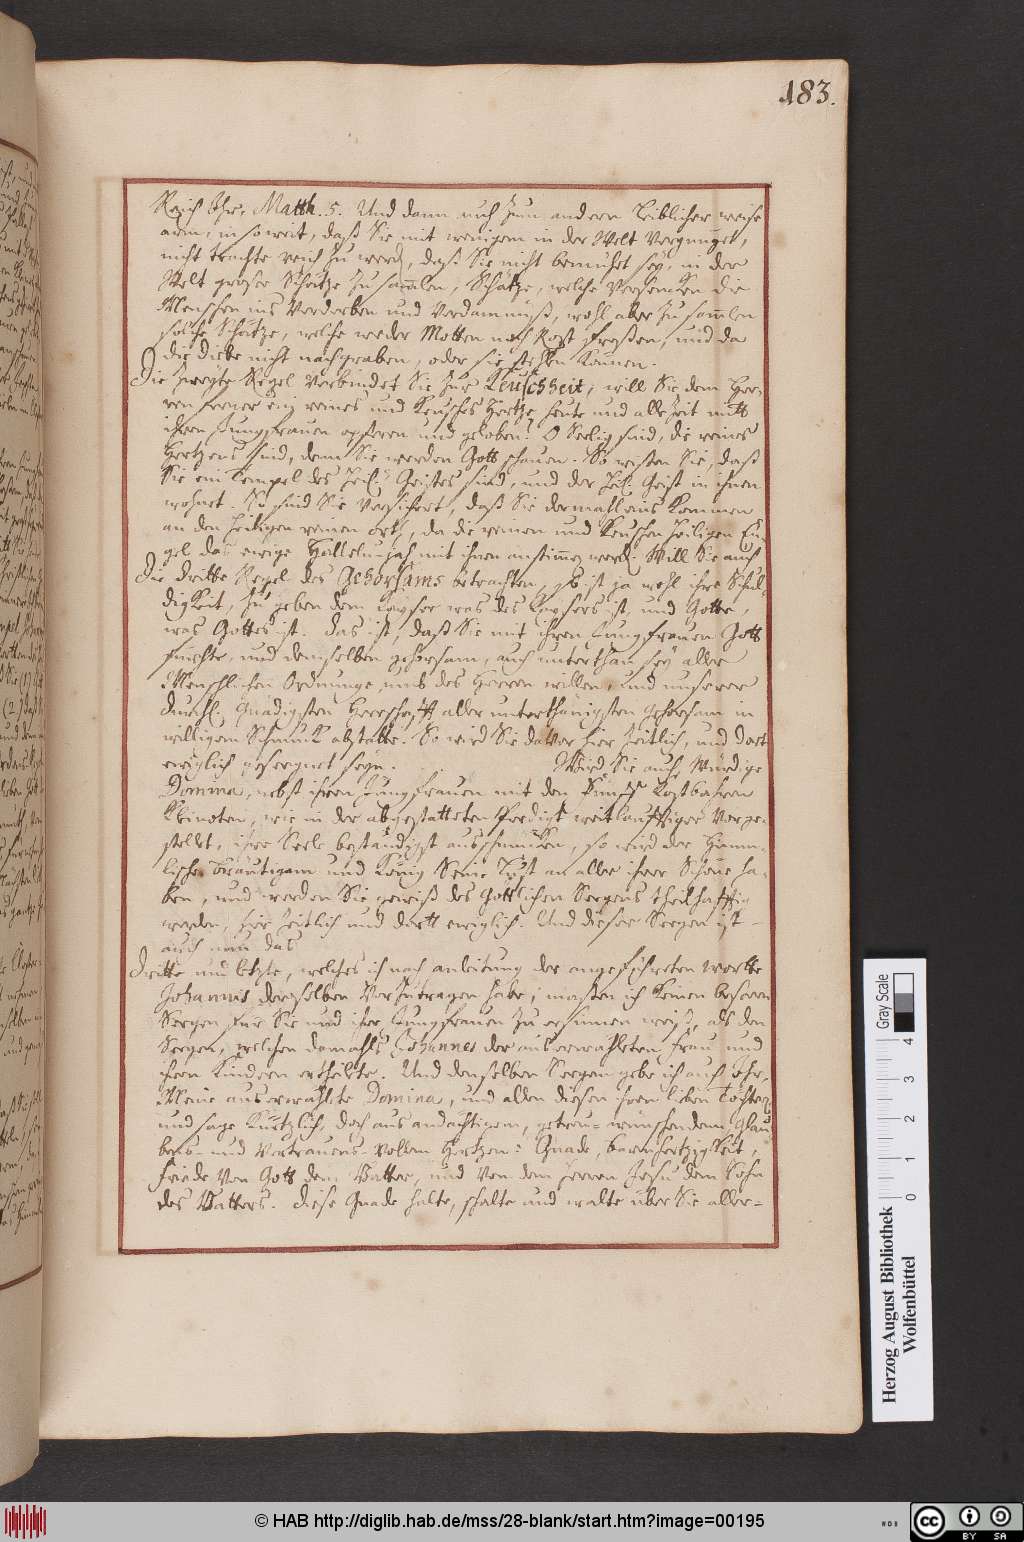 183.
Reich Ihr, Matth. 5. Und dann auch Zum andern Leiblicher weise
arm, in so weit, daß Sie mit wenigem in der Welt Vergnüget,
nicht trachte reich zu werden, daß Sie nicht bemühet sey, in der
Welt grose Schätze zu samlen, Schätze, welche Versencken die
Menschen ins Verderben und Verdamnuß, wohl aber zu samlen
solche Schätze, welche weder Motten noch Rost freßen, und da
die Diebe nicht nachgraben, oder sie stehlen können.
Die Zweyte Regel Verbindet Sie zur Keuschheit, will Sie dem Her-
ren ferner ein reines und Keusches Hertze heute und alle Zeit mitt
ihren Jungfrauen opferen und geloben? O Seelig sind, die reines
Hertzens sind, denn Sie werden Gott schauen. So wißen Sie, daß
Sie ein Tempel des Heil. Geistes sind, und der Heil. Geist in ihnen
wohnet. So sind Sie Versichert, daß Sie dermahl eins Kommen
an den Heiligen reinen orth, da die reinen und Keuschen Heiligen En-
gel das ewige Halleluhjah mit ihnen anstimmen werd. Will Sie auch
Die dritte Regel des Gehorsams betrachten, so ist ja wohl ihre Schul-
digkeit, Zu geben dem Kayser was des Kaysers ist, und Gotte,
was Gottes ist. das ist, daß Sie mit ihren Jungfrauen Gott
fürchte, und demselben gehorsam, auch unterthan sey aller
Menschlichen Ordnunge, umb des Herren willen, und unserer
Durchl. Gnädigsten Herrschafft aller unterthänigsten gehorsam in
willigem Schmuck abstatte. So wird Sie davor hier Zeitlich, und dort
ewiglich gesegnet seyn. Wird Sie auch, Würdige
Domina, nebst ihren Jungfrauen mit den Fünff Kostbahren
Kleinoten, wie in der abgestatteten Predigt weitläuffiger Vorge-
stellt, ihre Seele beständigst ausschmücken, so wird der Himm-
lische Bräutigam und König Seine Lust an aller ihrer Schöne ha-
ben, und werden Sie gewiß des Göttlichen Seegens theilhafftig
werden, hier Zeitlich und dortt ewiglich. Und dieser Seegen ist
auch nun das
Dritte und letzte, welches ich nach anleitung der angeführeten wortte
Johannis derselben Vorzutragen habe, maßen ich Keinen beseren
Seegen für Sie und ihre Jungfrauen zu ersinnen weiß, als den
Seegen, welchen damahls Johannes der auserwehleten Frau und
ihren Kindern ertheilte. Und denselben Seegen gebe ich auch Ihr,
Meine auserwählte Domina, und allen diesen ihren lieben Töchtern
und sage Kürtzlich, doch aus andächtigem, getreu-wünschendem, Glau-
bens- und Vertrauens-vollem Hertzen: Gnade, barmhertzigkeit,
Friede Von Gott dem Vatter, und Von dem Herren Jesu dem Sohn
des Vatters. Diese Gnade halte, schalte und walte über Sie aller-
Herzog August Bibliothek
Wolfenbüttel
Gray Scale
0 1 2 3 4
© HAB http://diglib.hab.de/mss/28-blank/start.htm?image=00195
WDB
cc BY SA